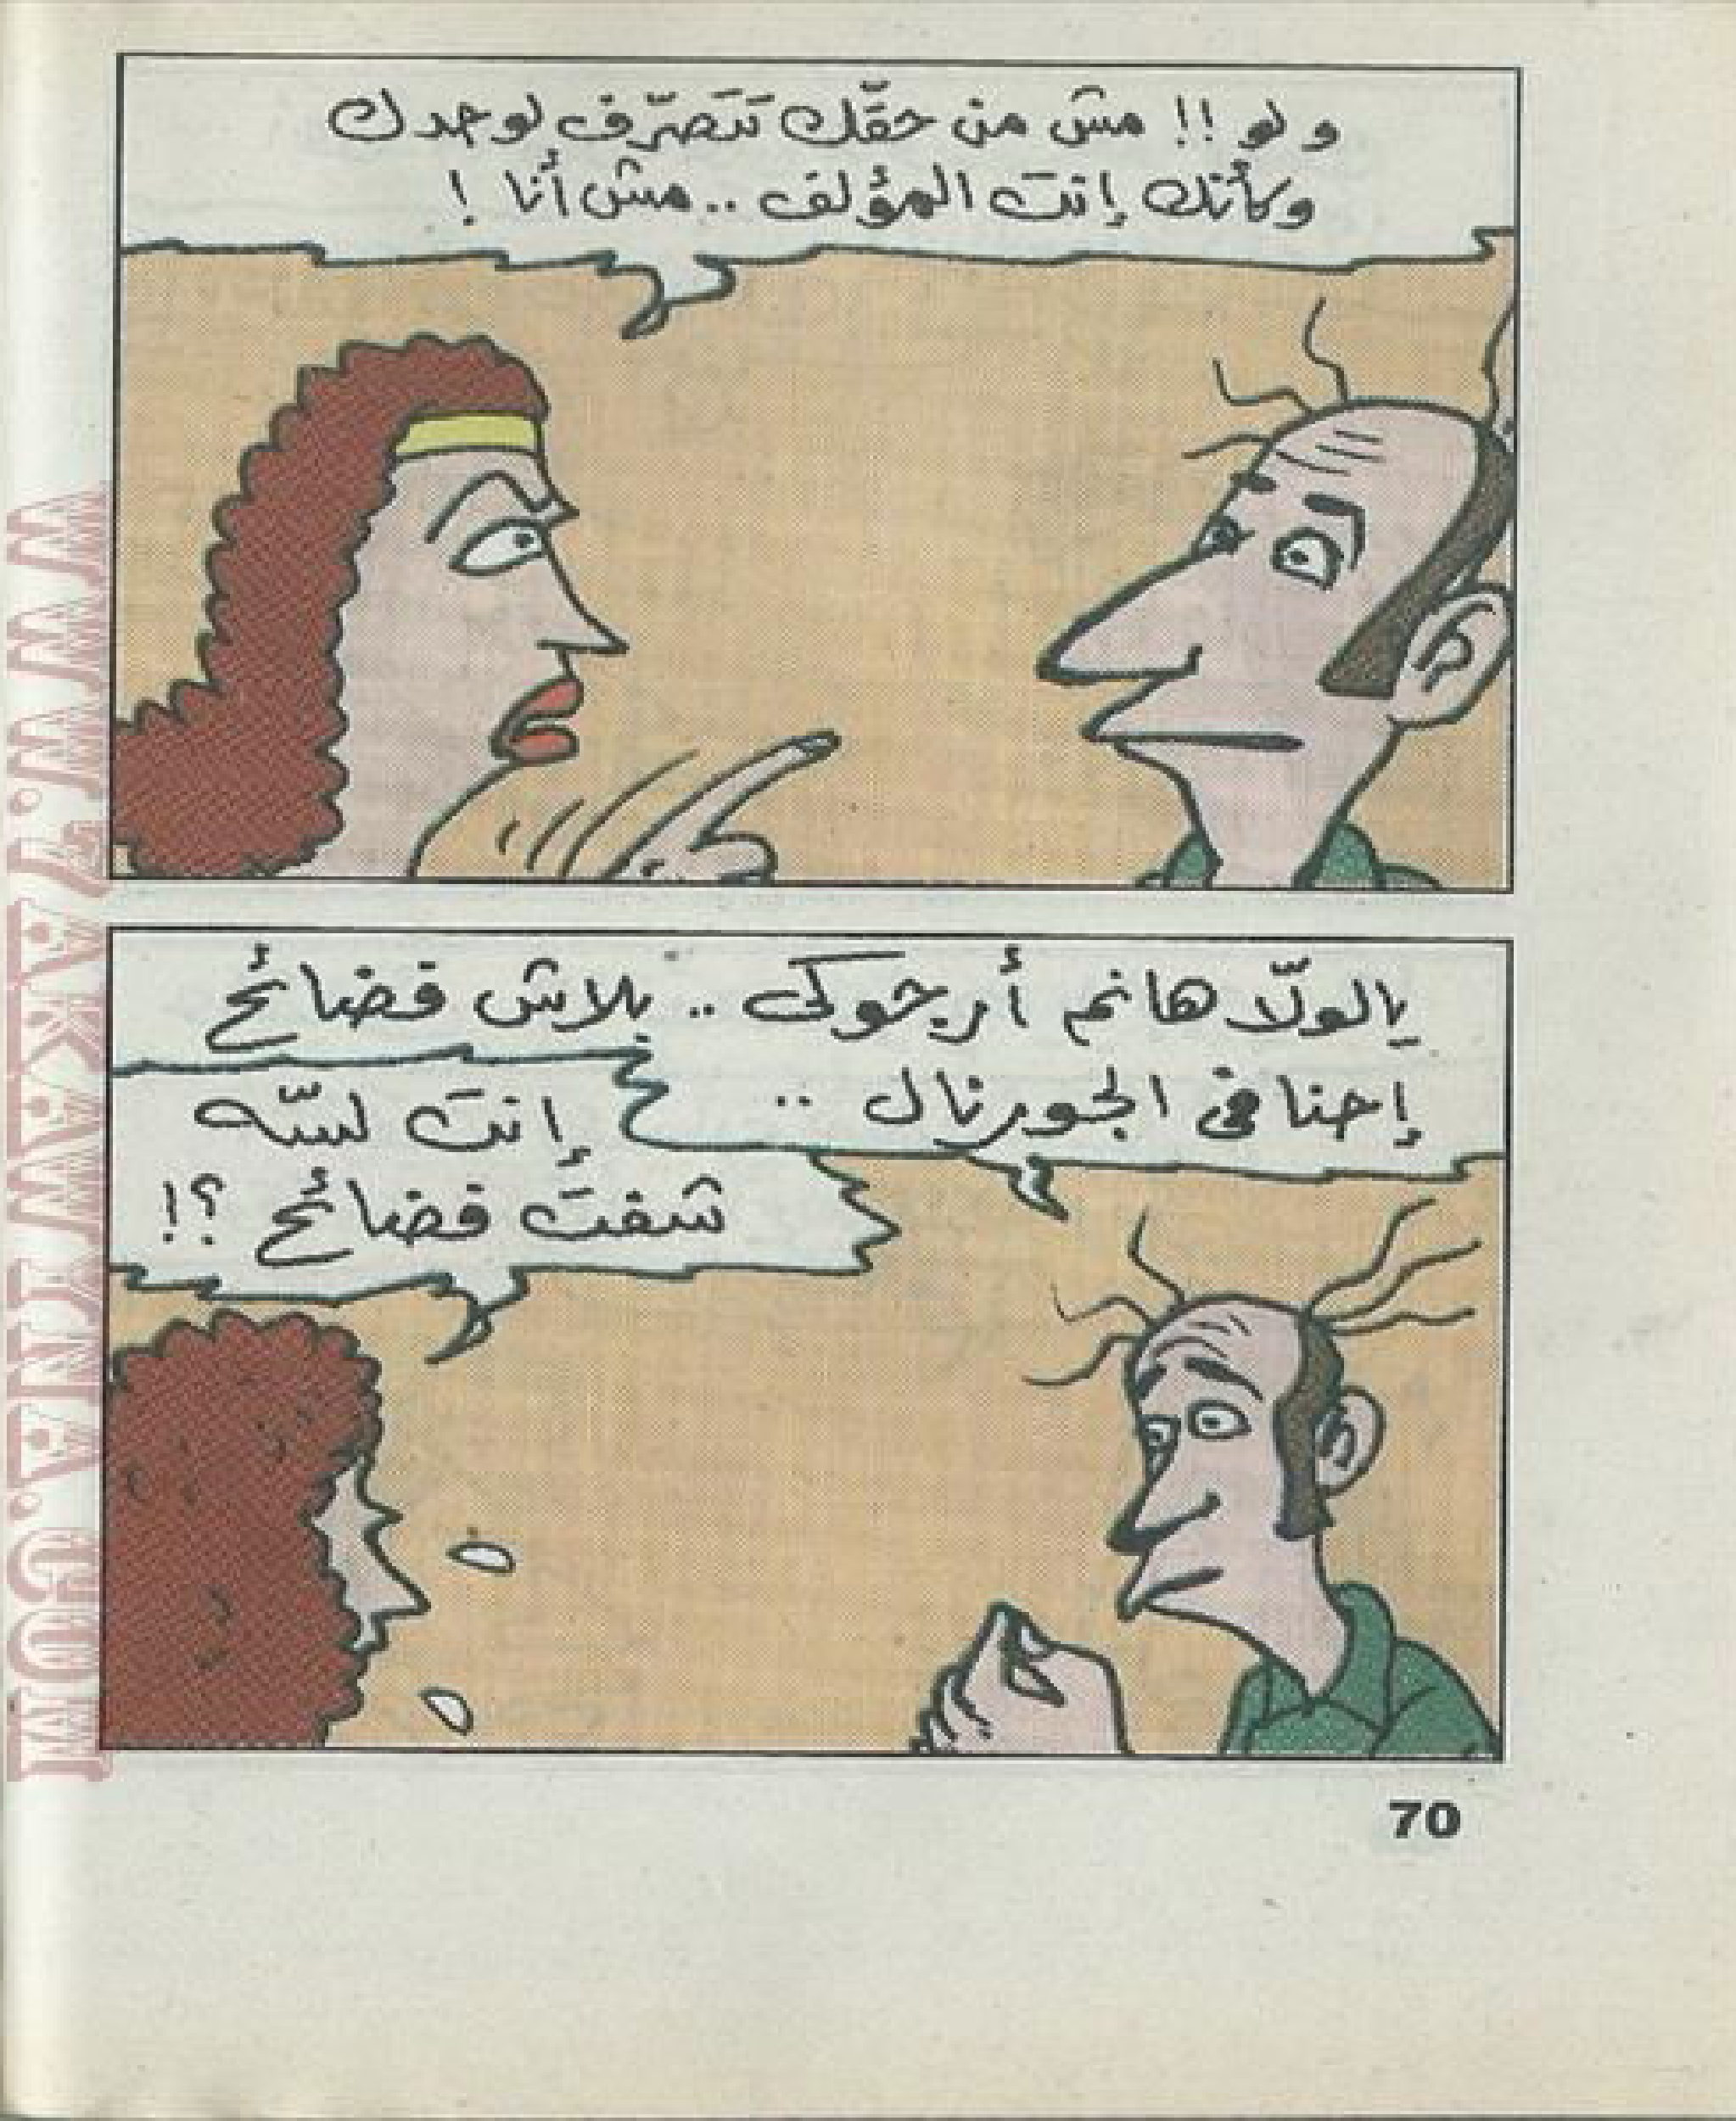 ولو !! مش من حقّك تتَصرّف لوحدك
وكأنك إنتَ المؤلف .. مش أنا !
يالولّا هانم أرجوكى .. بلاش فضائح
إحنا فى الجورنال ..
إنتَ لسّه
شفتَ فضائح ؟!
70
WWW.7AKAWINA.COM